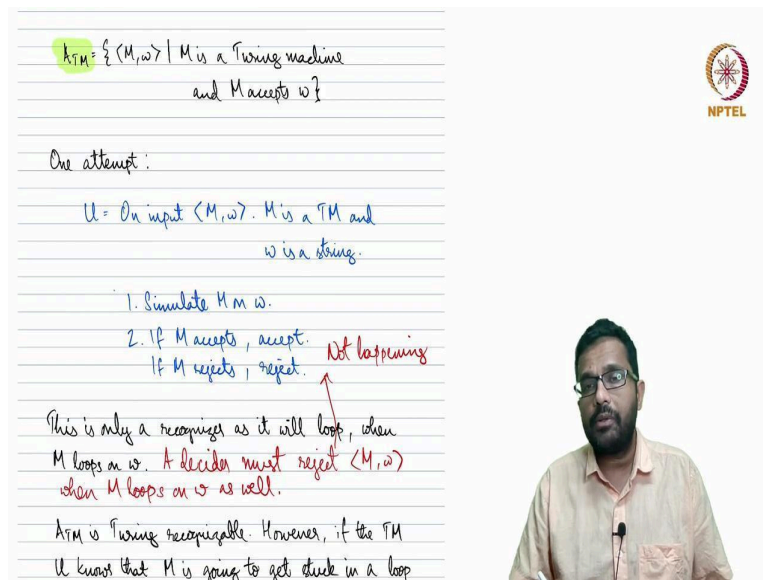 A_TM = { ⟨M,w⟩ | M is a Turing machine
and M accepts w}
NPTEL
One attempt :
U = On input ⟨M,w⟩. M is a TM and
w is a string.
1. Simulate M on w.
2. If M accepts, accept.
If M rejects, reject.
Not happening
This is only a recognizer as it will loop, when
M loops on w. A decider must reject ⟨M,w⟩
when M loops on w as well.
A_TM is Turing recognizable. However, if the TM
U knows that M is going to get stuck in a loop